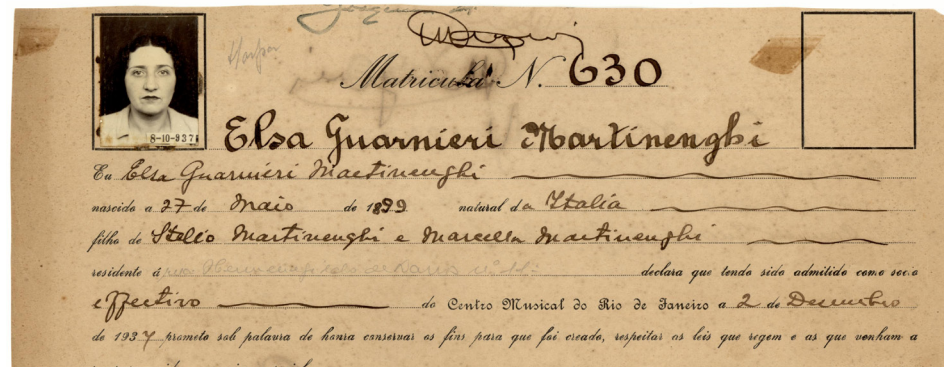 Matricula N. 630
8-10-937
Elsa Guarnieri Martinenghi
Eu Elsa Guarnieri Martinenghi
nascido a 27 de Maio de 1899 natural da Italia
filho de Stelio Martinenghi e Marcella Martinenghi
residente á rua declara que tendo sido admitido como socio
effectivo do Centro Musical do Rio de Janeiro a 2 de Dezembro
de 1937 prometo sob palavra de honra conservar os fins para que foi creado, respeitar as leis que regem e as que venham a